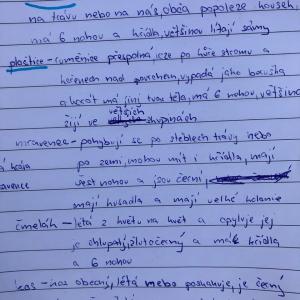 na trávu nebo na nás, občas popoleze kousek,
má 6 nohou a křídla, většinou lítají sámy
ploštice - ruměnice přespolná, leze po kůře stromu a
kořenech nad povrchem, vypadá jako beruška
akorát má jiný tvar těla, má 6 nohou, většinou
žijí ve větších skupinách
mravenec - pohybují se po stéblech trávy nebo
po zemi, mohou mít i křídla, mají
šest nohou a jsou černí,
mají kusadla a mají velké kolonie
čmelák - létá z květu na květ a opyluje jej
je chlupatý, žlutočerný a má křídla
a 6 nohou
kos - kos obecný, létá nebo poskakuje, je černý